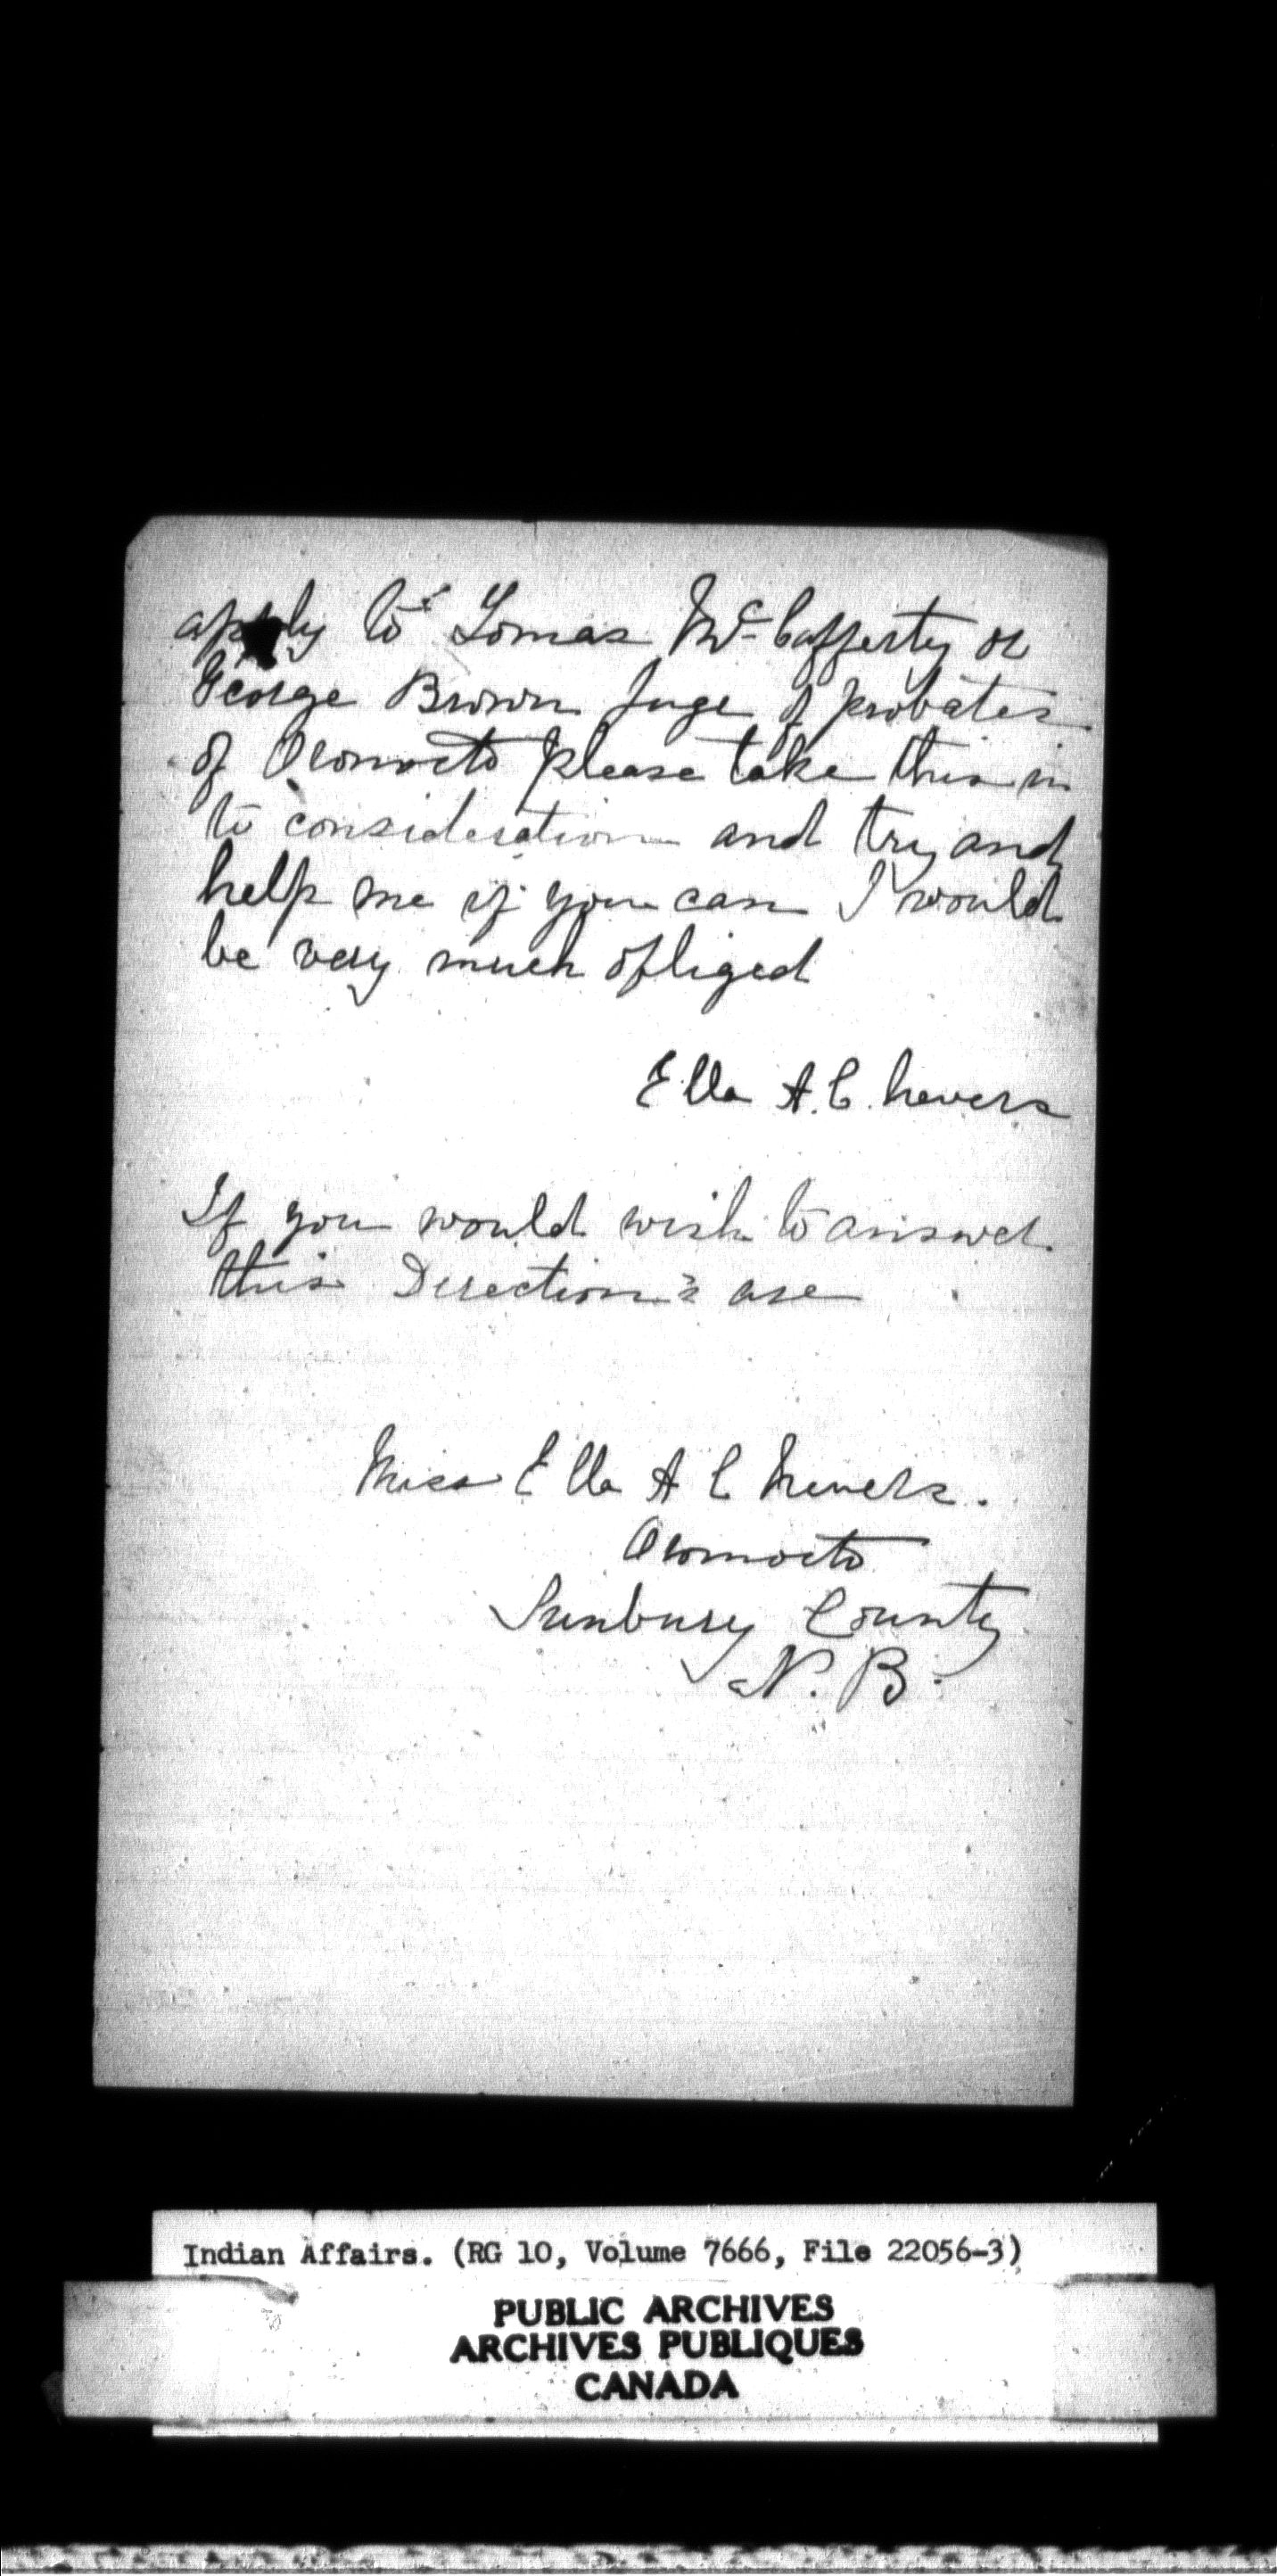 apply to Tomas Mc Cafferty or
George Brown Juge of probates
of Oromocto please take this in
to consideration and try and
help me if you can I would
be very much obliged
Ella A. C. Nevers
If you would wish to answer
this Direction's are
Miss Ella A C Nevers.
Oromocto
Sunbury County
N. B.
Indian Affairs. (RG 10, Volume 7666, File 22056-3)
PUBLIC ARCHIVES
ARCHIVES PUBLIQUES
CANADA